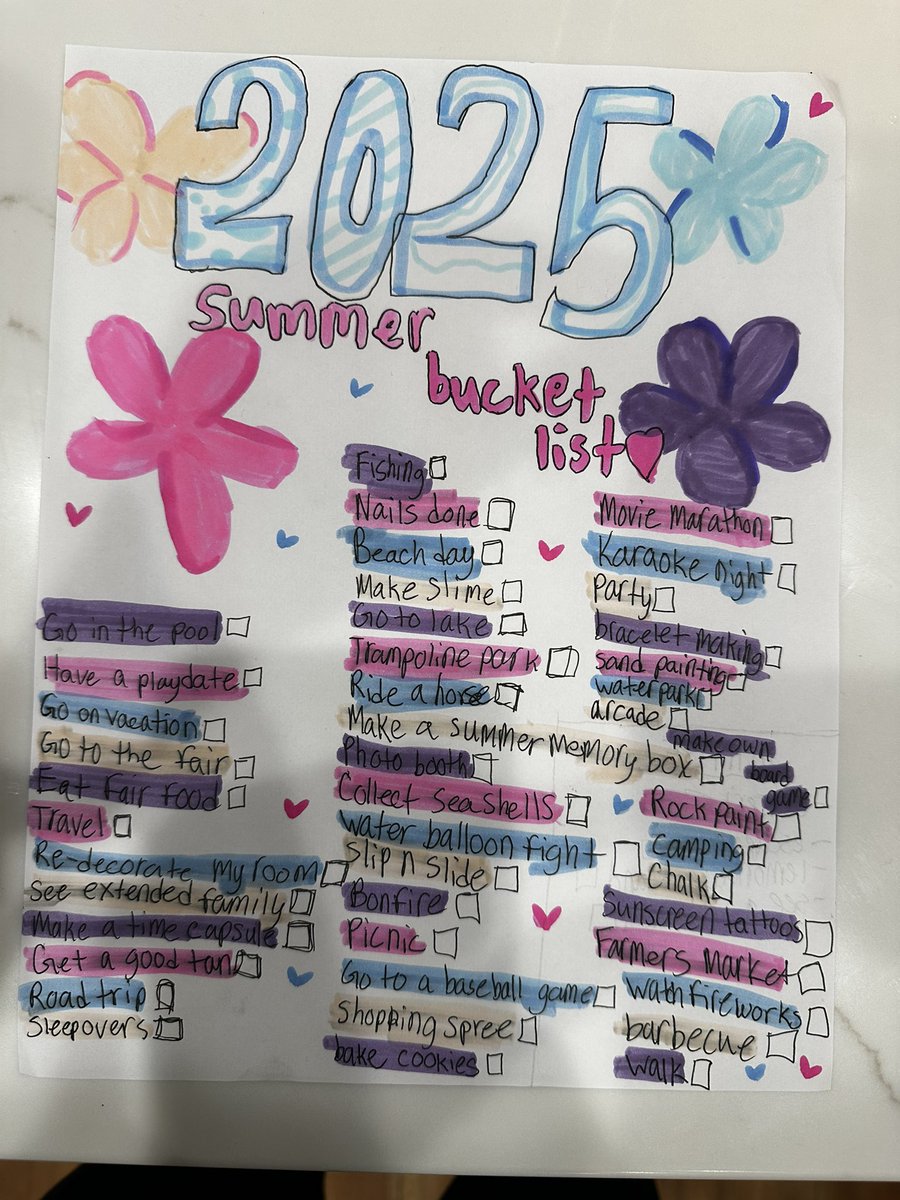 2025
summer
bucket
list
Go in the pool
Have a playdate
Go on vacation
Go to the fair
Eat fair food
Travel
Re-decorate my room
See extended family
Make a time capsule
Get a good tan
Road trip
Sleepovers
Fishing
Nails done
Beach day
Make slime
Go to lake
Trampoline park
Ride a horse
Make a summer memory box
Photo booth
Collect Seashells
water balloon fight
slip n slide
Bonfire
Picnic
Go to a baseball game
shopping spree
bake cookies
Movie Marathon
Karaoke night
Party
bracelet making
sand painting
waterpark
arcade
make own
board
game
Rock paint
Camping
Chalk
Sunscreen tattoos
Farmers Market
wathfireworks
barbecue
walk